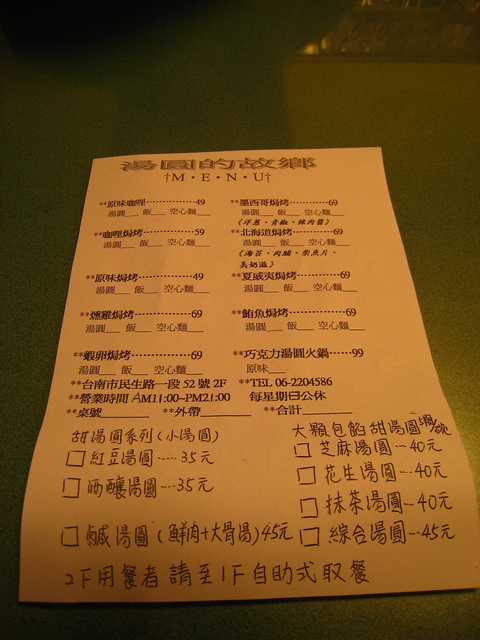 湯圓的故鄉
†M・E・N・U†
**原味咖哩··············49
湯圓__ 飯__ 空心麵__
**咖哩焗烤··············59
湯圓__ 飯__ 空心麵__
**原味焗烤··············49
湯圓__ 飯__ 空心麵__
**燻雞焗烤··············69
湯圓__ 飯__ 空心麵__
**蝦卵焗烤··············69
湯圓__ 飯__ 空心麵__
**墨西哥焗烤···········69
湯圓__ 飯__ 空心麵__
(洋蔥、青椒、辣肉醬)
**北海道焗烤···········69
湯圓__ 飯__ 空心麵__
(海苔、肉脯、柴魚片、
美奶滋)
**夏威夷焗烤···········69
湯圓__ 飯__ 空心麵__
**鮪魚焗烤··············69
湯圓__ 飯__ 空心麵__
**巧克力湯圓火鍋······99
原味__
**台南市民生路一段 52 號 2F
**TEL 06-2204586
**營業時間 AM11:00~PM21:00
每星期日公休
**桌號______ **外帶______ **合計______
甜湯圓系列(小湯圓)
□ 紅豆湯圓····35元
□ 酒釀湯圓···35元
□ 鹹湯圓(鮮肉+大骨湯)45元
大顆包餡甜湯圓 5顆/碗
□ 芝麻湯圓--40元
□ 花生湯圓--40元
□ 抹茶湯圓--40元
□ 綜合湯圓--45元
2F用餐者請至1F自助式取餐